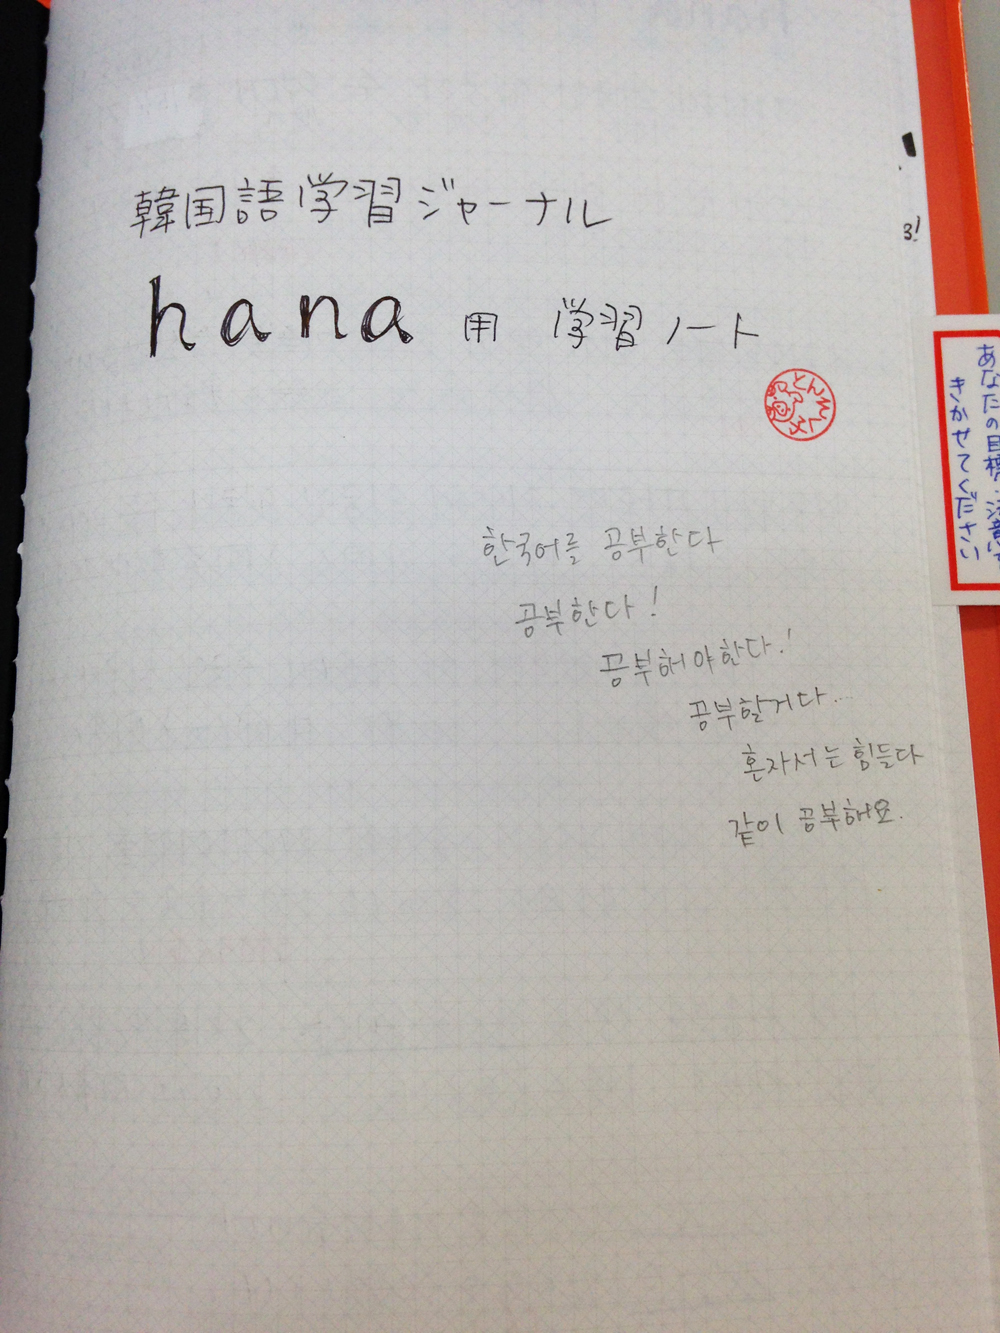 韓国語学習ジャーナル
hana用 学習ノート
한국어를 공부한다
공부한다!
공부해야한다!
공부할거다...
혼자서는 힘들다
같이 공부해요.
3!
あなたの目標
きかせてください